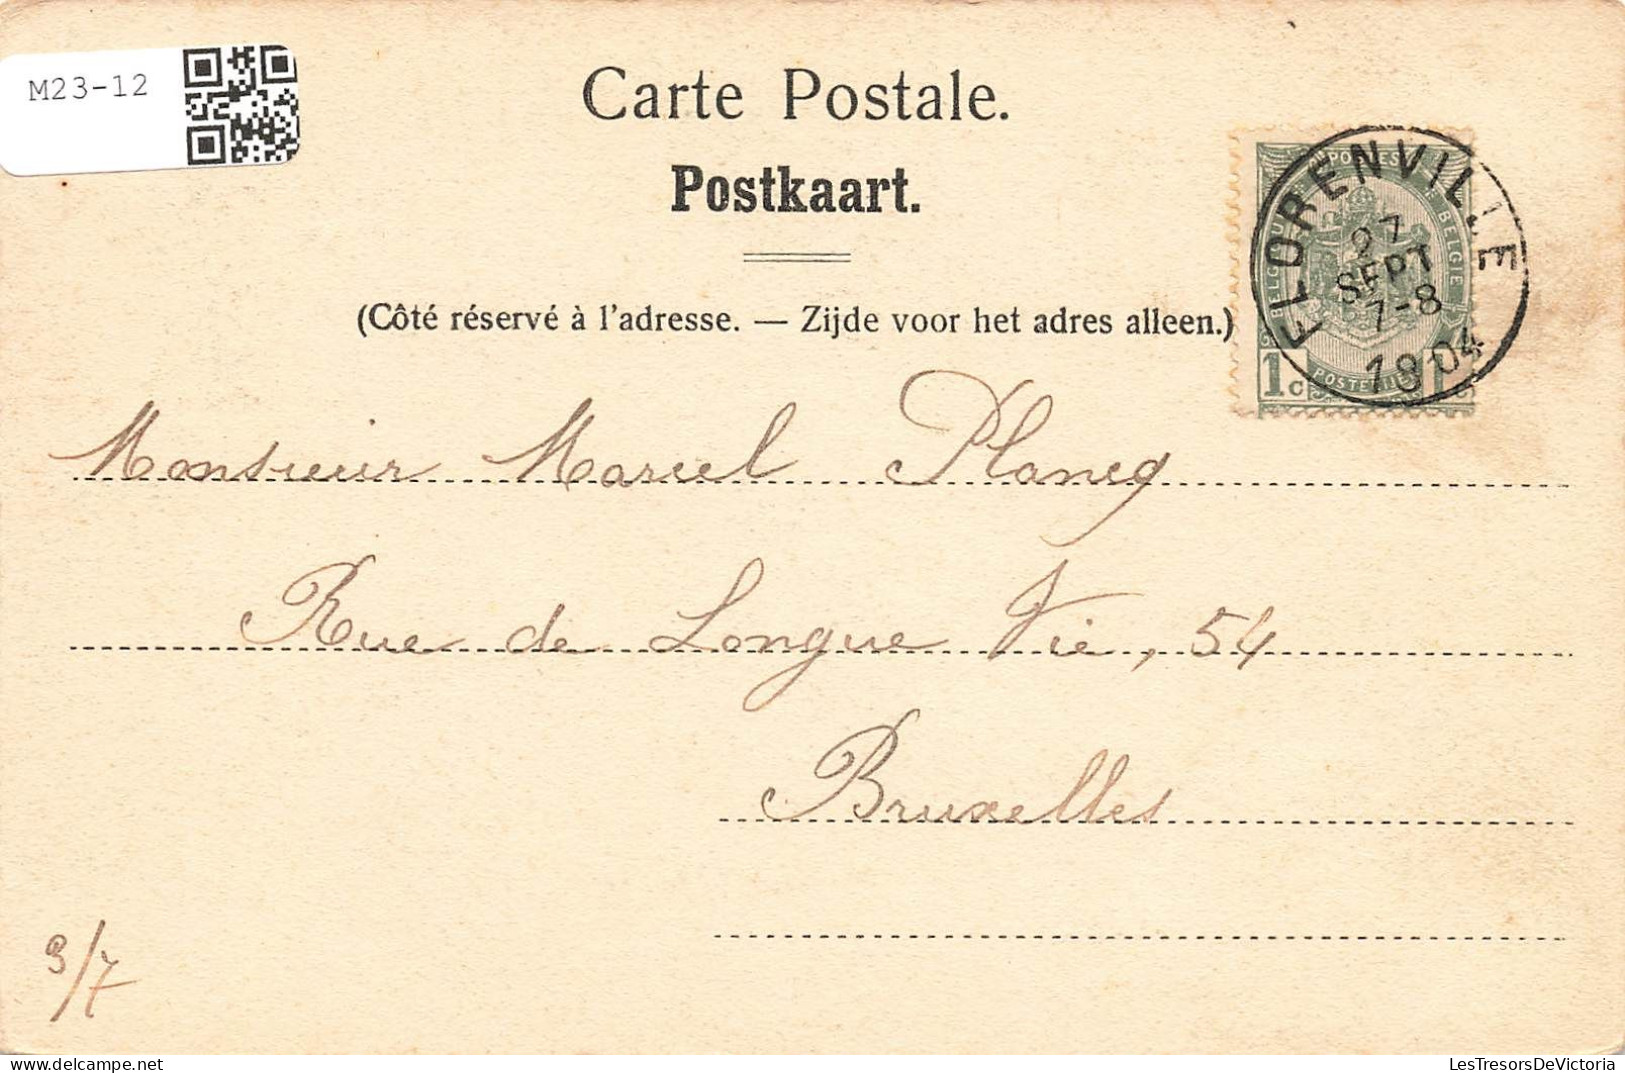 M23-12
Carte Postale.
Postkaart.
(Côté réservé à l'adresse. — Zijde voor het adres alleen.)
FLORENVILLE
27
SEPT
7-8
1904
POSTES
BELGIQUE BELGIE
POSTERIJEN
1c 1c
Monsieur Marcel Plancq
Rue de Longue Vie, 54
Bruxelles
3/7
LesTresorsDeVictoria